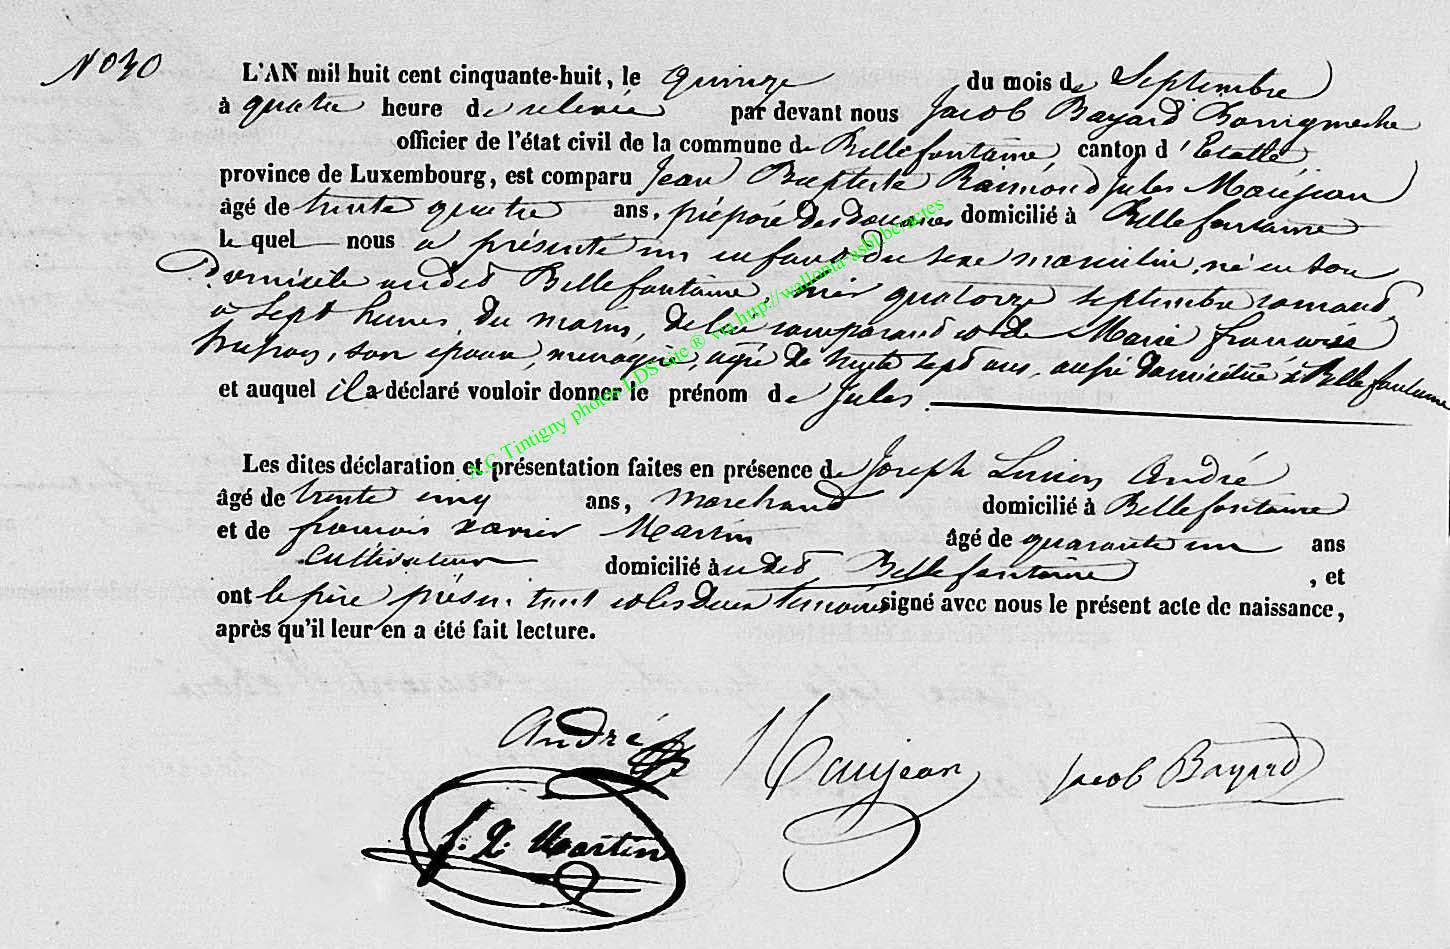 N° 30
L'AN mil huit cent cinquante-huit, le quinze du mois de Septembre
à quatre heure de relevée par devant nous Jacob Bayard Bourgmestre
officier de l'état civil de la commune de Bellefontaine, canton d'Etalle
province de Luxembourg, est comparu Jean Baptiste Raimond Jules Maujean
âgé de trente quatre ans, préposé des douanes domicilié à Bellefontaine
lequel nous a présenté un enfant du sexe masculin, né en son
domicile audit Bellefontaine, hier quatorze septembre courant,
à sept heures du matin, de lui comparant et de Marie françoise
son épouse, ménagère, agée de trente sept ans, aussi domiciliée à Bellefontaine
et auquel il a déclaré vouloir donner le prénom de Jules.
Les dites déclaration et présentation faites en présence de Joseph Lucien André
âgé de trente cinq ans, marchand domicilié à Bellefontaine
et de françois xavier Martin âgé de quarante un ans
cultivateur domicilié à udit Bellefontaine, et
ont le père présentant et les deux témoins signé avec nous le présent acte de naissance,
après qu'il leur en a été fait lecture.
André Maujean Jacob Bayard
f. X. Martin
A.C Tintigny photos LDS site ® via http://wallonia-asbl.be/actes